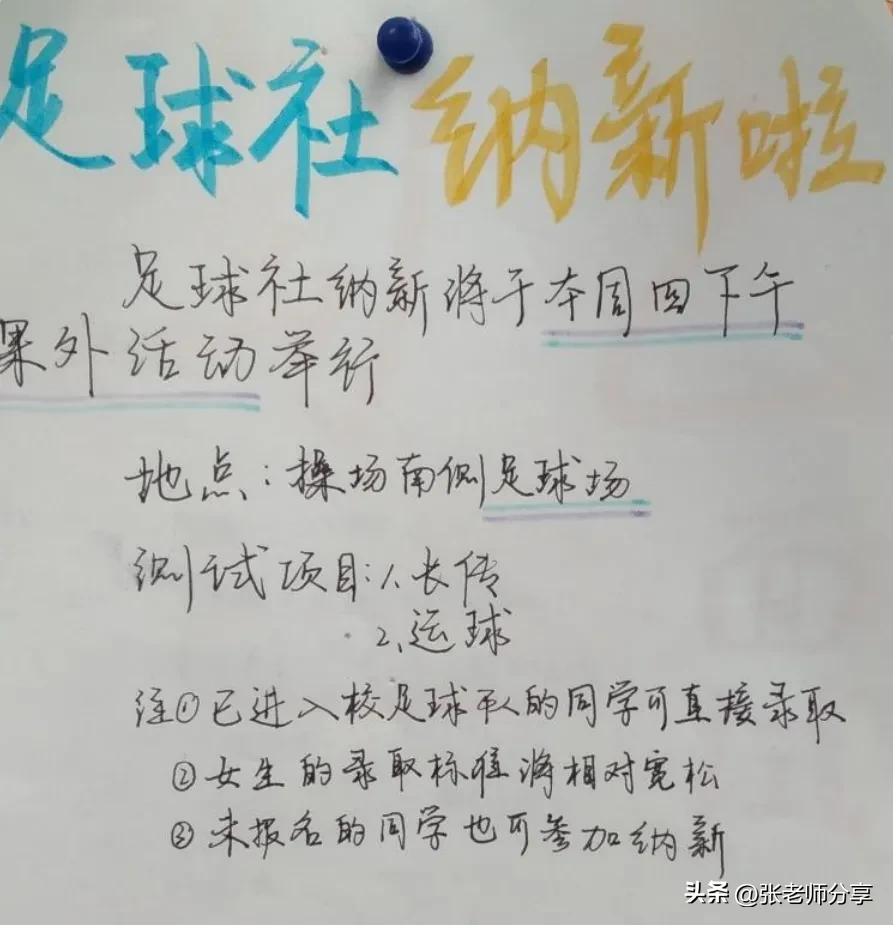 足球社纳新啦
足球社纳新将于本周四下午
课外活动举行
地点:操场南侧足球场
测试项目:1、长传
2、运球
注①已进入校足球队的同学可直接录取
②女生的录取标准将相对宽松
③未报名的同学也可参加纳新
头条 @张老师分享